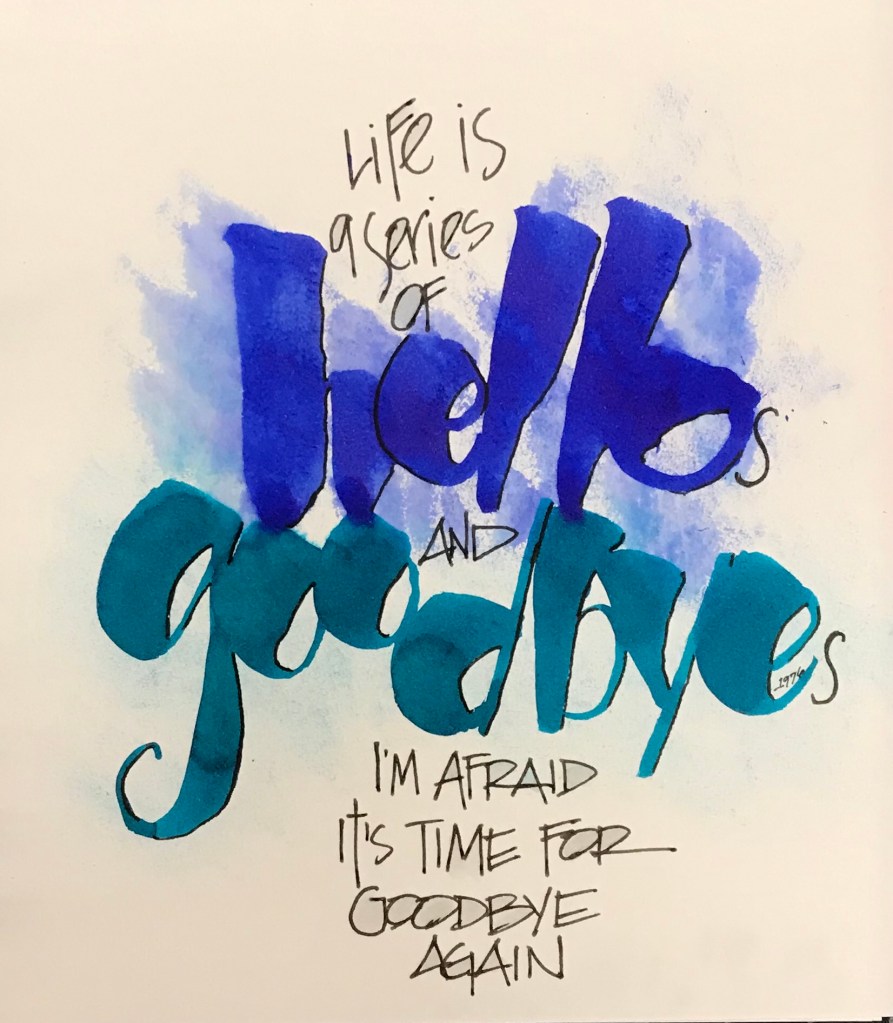 Life is
a series
OF
hellos
AND
goodbyes
1976
I'M AFRAID
It's TIME FOR
GOODBYE
AGAIN